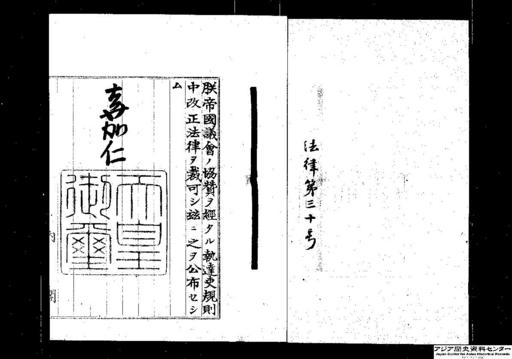 法律第三十号
朕帝國議會ノ協賛ヲ經タル執達吏規則
中改正法律ヲ裁可シ茲ニ之ヲ公布セシ
ム
嘉仁
天皇
御璽
内
閣
アジア歴史資料センター
Japan Center for Asian Historical Records